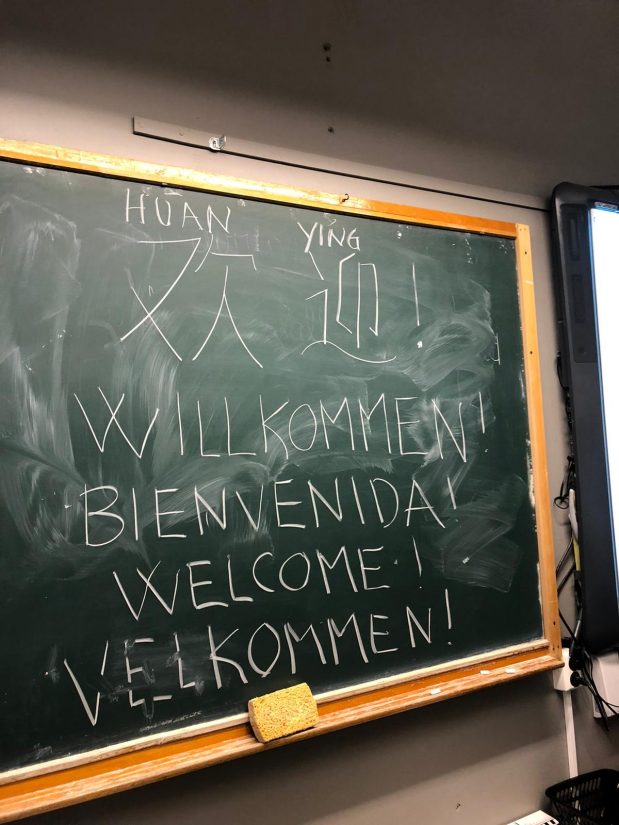 HUĀN YÍNG
欢迎!
WILLKOMMEN!
BIENVENIDA!
WELCOME!
VELKOMMEN!